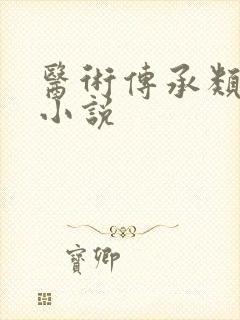 醫術傳承類
小說
寶卿